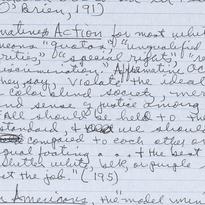 O'Brien, 191)
Action for most whit
means "quotas," "unqualified
rities," "special rights," "re
discrimination." Affirmative Ac
they say, violates the ideal
color blind society, mer
and sense of justice among
"All should be held to the
standard, & we should
compared to each other on
equal footing . . . & the best
whether white, black or purple
get the job." (195)
Americans, the "model min